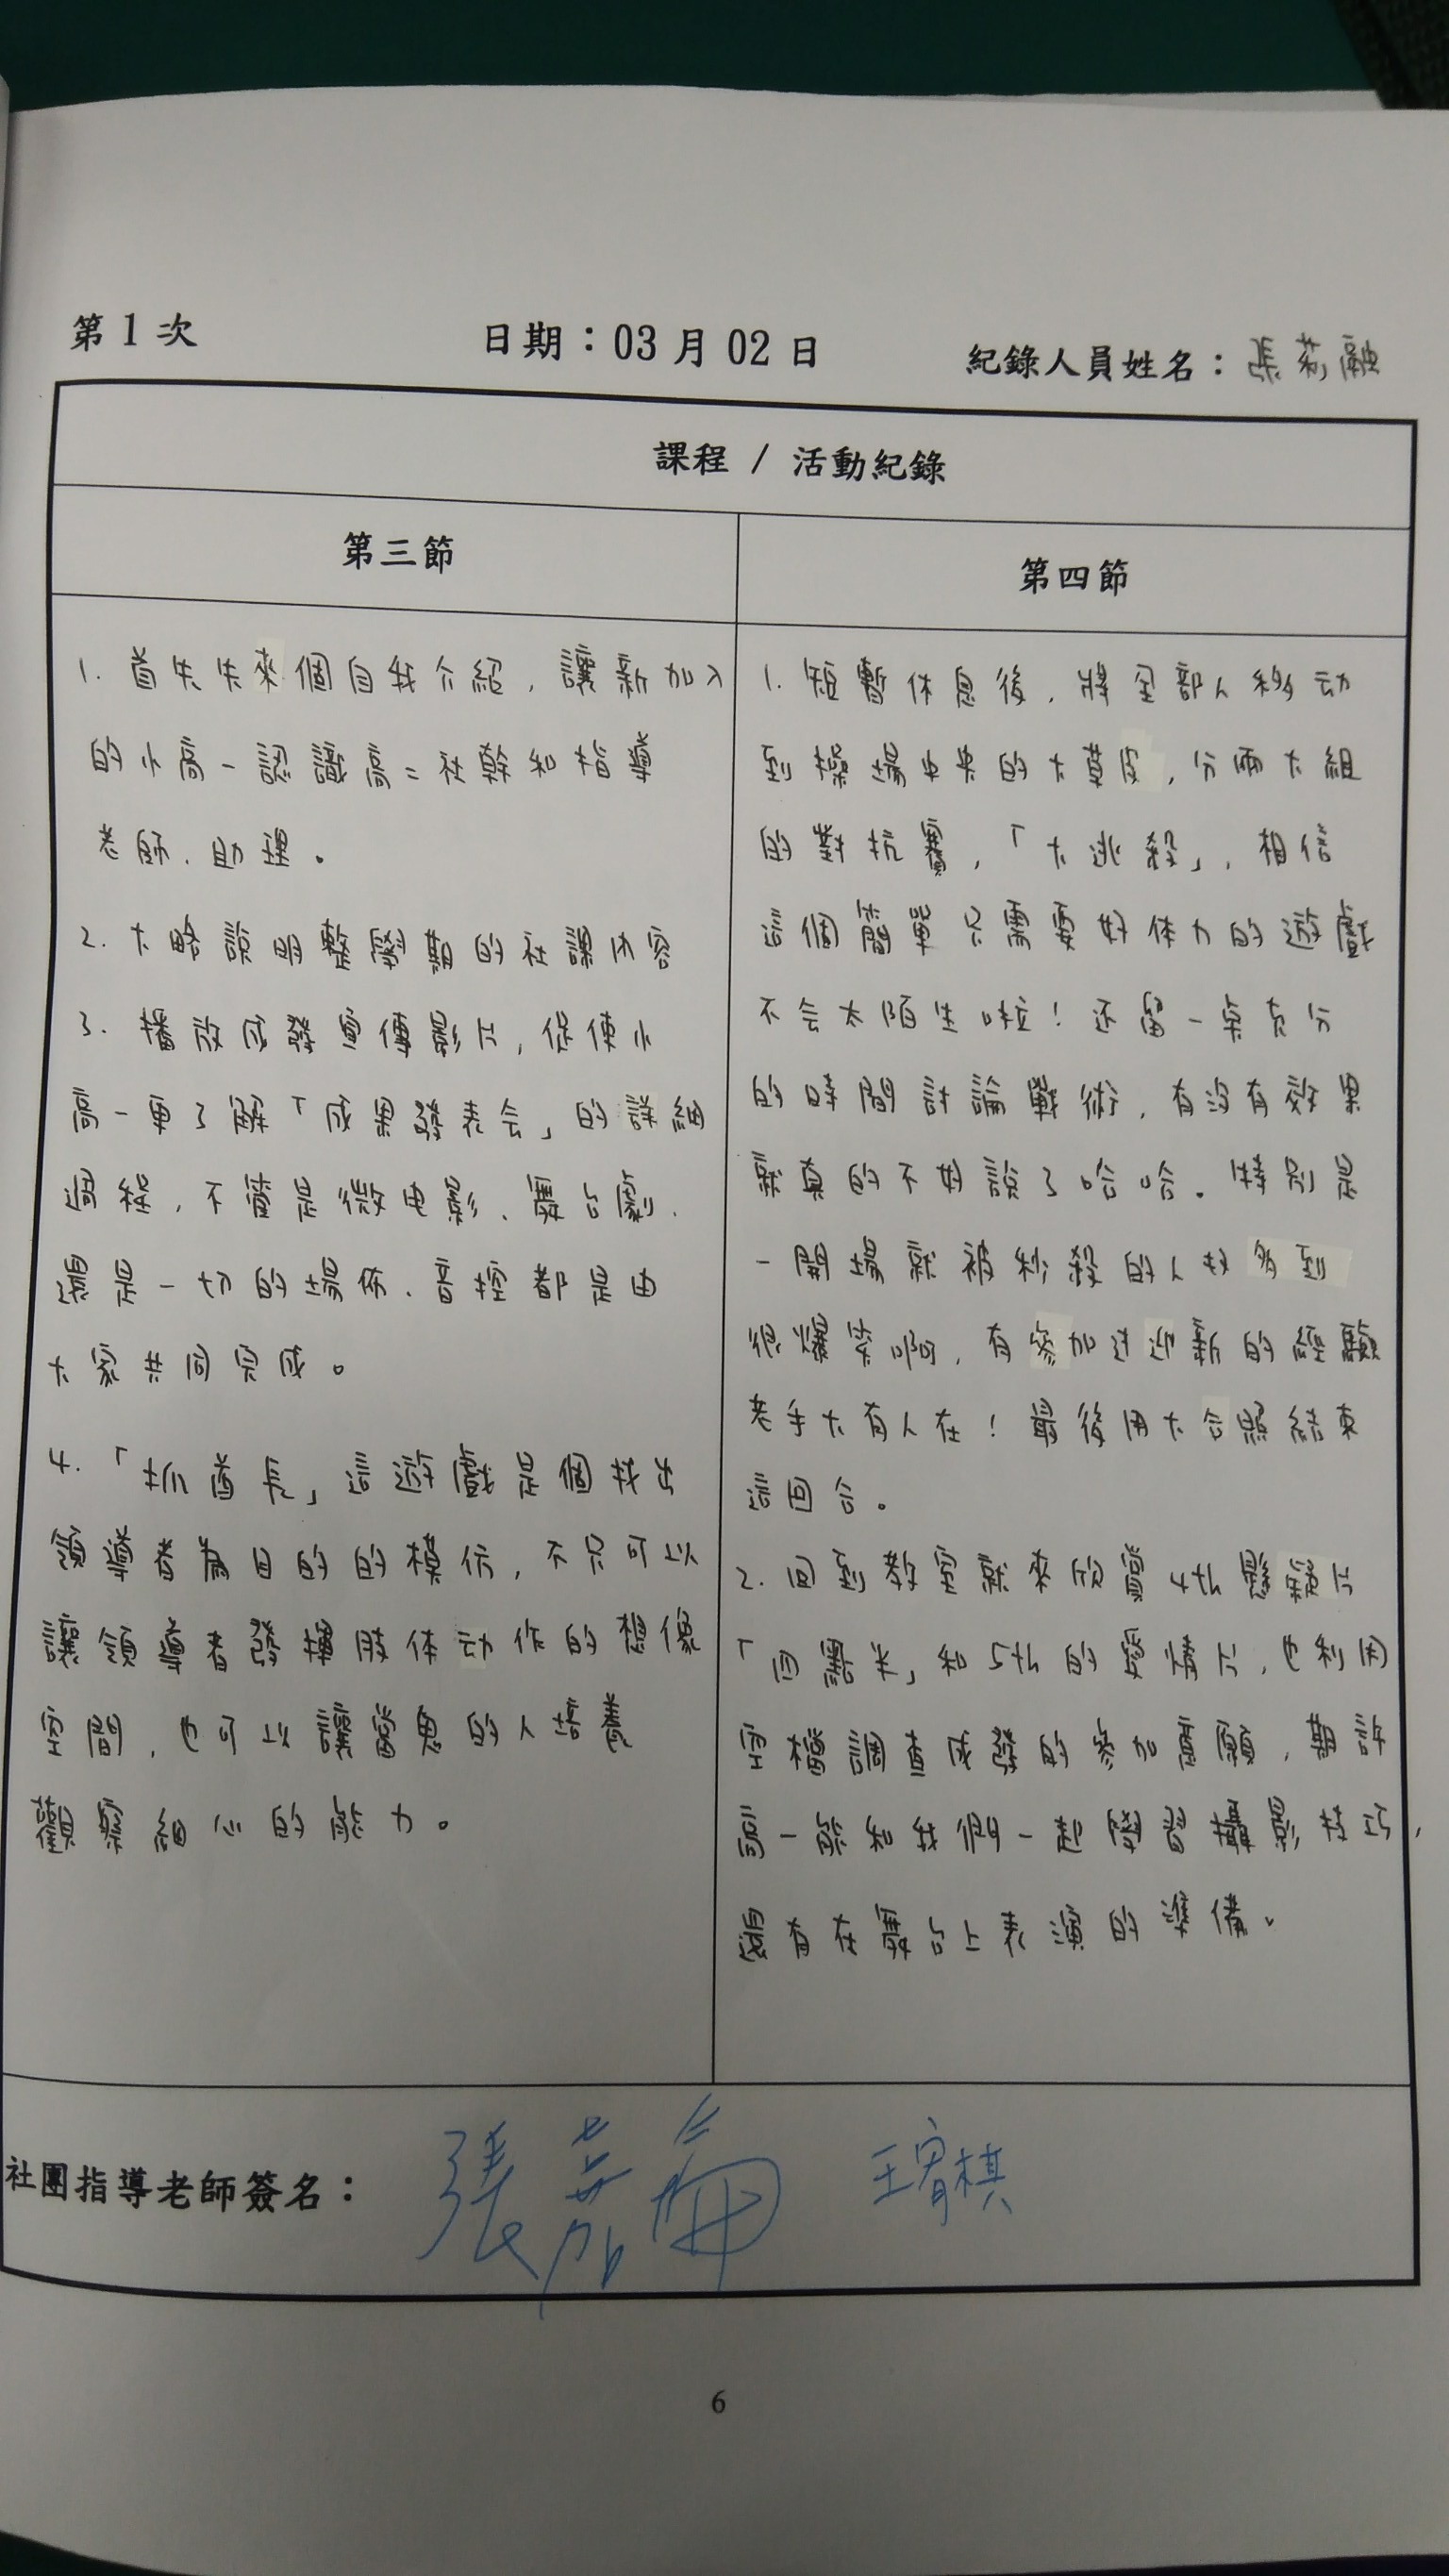 第 1 次
日期：03 月 02 日
紀錄人員姓名：張莉融
課程 / 活動紀錄
第三節
1. 首先先來個自我介紹，讓新加入
的小高一認識高二社幹和指導
老師、助理。
2. 大略說明整學期的社課內容
3. 播放成發宣傳影片，促使小
高一更了解「成果發表会」的詳細
過程，不管是微电影、舞台劇、
還是一切的場佈、音控都是由
大家共同完成。
4. 「抓酋長」這遊戲是個找出
領導者為目的的模仿，不只可以
讓領導者發揮肢体动作的想像
空間，也可以讓當鬼的人培養
觀察細心的能力。
第四節
1. 短暫休息後，將全部人移动
到操場中央的大草皮，分兩大組
的對抗賽，「大逃殺」，相信
這個簡單只需要好体力的遊戲
不会太陌生啦！还留一桌充分
的時間討論戰術，有沒有效果
就真的不好說了哈哈。特別是
一開場就被秒殺的人也多到
很爆笑啊，有參加过迎新的經驗
老手大有人在！最後用大合照結束
這回合。
2. 回到教室就來欣賞4th懸疑片
「四點半」和5th的愛情片，也利用
空檔調查成發的參加意願，期許
高一能和我們一起學習攝影技巧，
還有在舞台上表演的準備。
社團指導老師簽名：
張 王宥棋
6